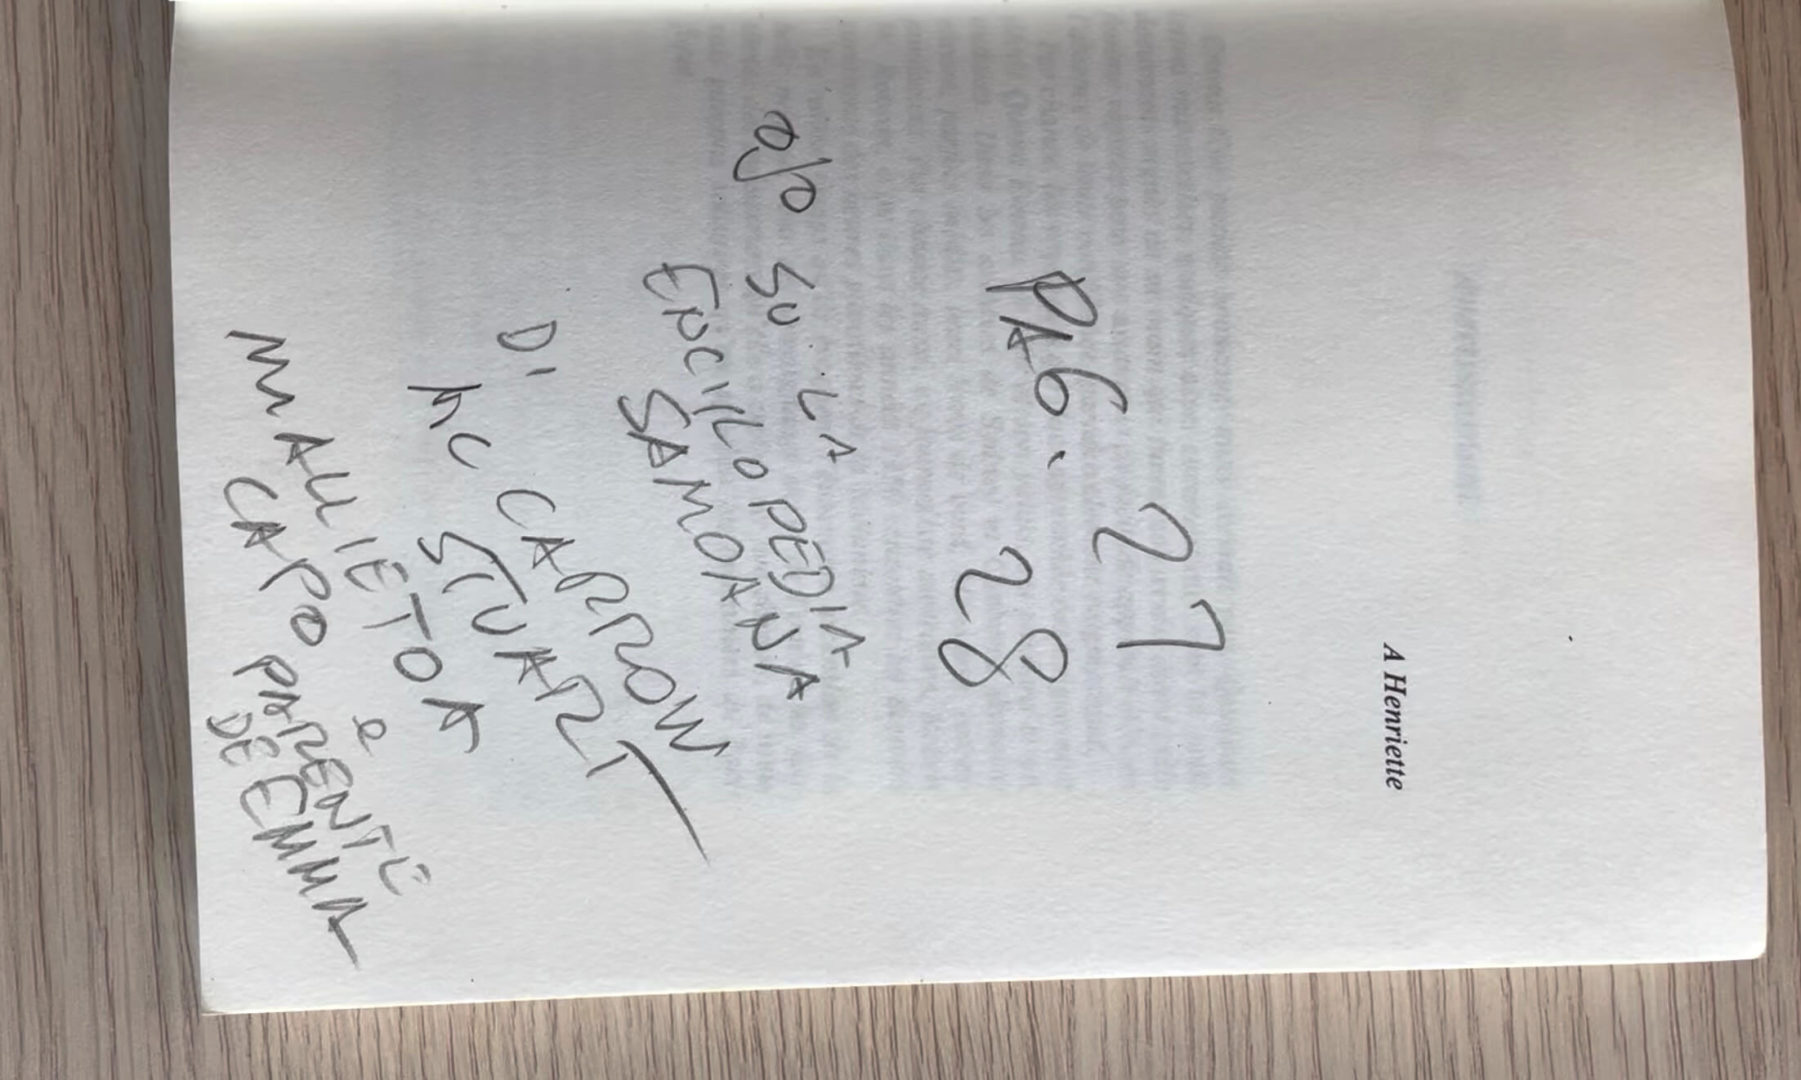 A Henriette
PAG. 27
28
o/o SU LA
ENCICLOPEDIA
SAMOANA
DI
MC CARROW
STUART
MALLIETOA
e
CAPO PARENTE
DE EMMA